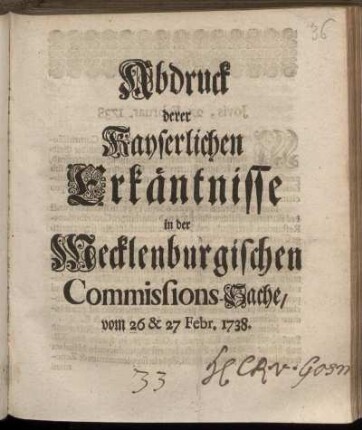 36
Abdruck
derer
Kayserlichen
Erkäntnisse
in der
Mecklenburgischen
Commissions-Sache,
vom 26 & 27 Febr. 1738.
33